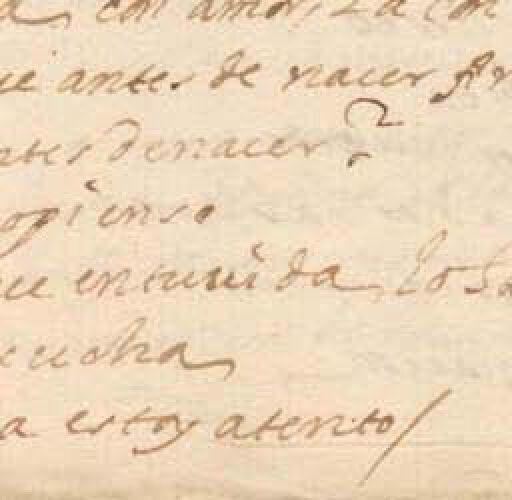 a, con amor, La con
ue antes de nacer
ntes de nacer?
opienso
ue entuuida, lo
cucha
a estoy atento/